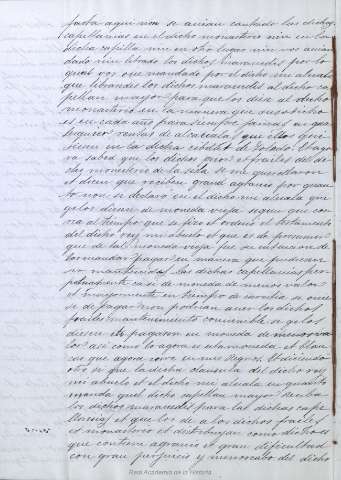 fasta aqui non se avian cantado las dichas
capellanias en el dicho monasterio nin en la
dicha capilla nin en otro lugar nin vos avian
dado nin librado los dichos maravedis por lo
qual vos ove mandado por el dicho mi alvala
que librandes los dichos maravedis al dicho ca
pellan mayor para que los diese al dicho
monasterio en la manera que suso dicho
es en cada año para siempre jamas en qua
lesquier rentas de alcavalas que ellos qui
siesen en la dicha cibdat de Toledo. Et ago
ra sabed que los dichos prior et frailes del di
cho monesterio de la sisla se me querellaron
et dicen que reciben grand agravio por quan
to non se declaró en el dicho mi alvala que
gelos diesen de moneda vieja segun que cor
ria al tiempo que se fizo et ordenó el testamento
del dicho rey mi abuelo et que es de presumir
que de tal moneda vieja fue su intencion de
los mandar pagar en manera que pudiesen
ser mantenidas las dichas capellanias per
petualmente ca si de moneda de menos valor
et mayormente en tiempo de carestia se oviese
de pagar non podrian aver los dichos
frailes mantenimiento convenible si gelos
diesen et pagasen en moneda de menos va
lor asi como lo agora es la moneda et blan
cas que agora corre en mis Regnos. Et diciendo
otro si que la dicha clausula del dicho rey
mi abuelo et el dicho mi alvala en quanto
manda quel dicho capellan mayor reciba
los dichos maravedis para las dichas cape
llanias et que los de a los dichos frailes
et monasterio et destribuyan como dicho es
que contiene agravio et gran dificultad
con gran perjuicio y menoscabo del dicho
Real Academia de la Historia